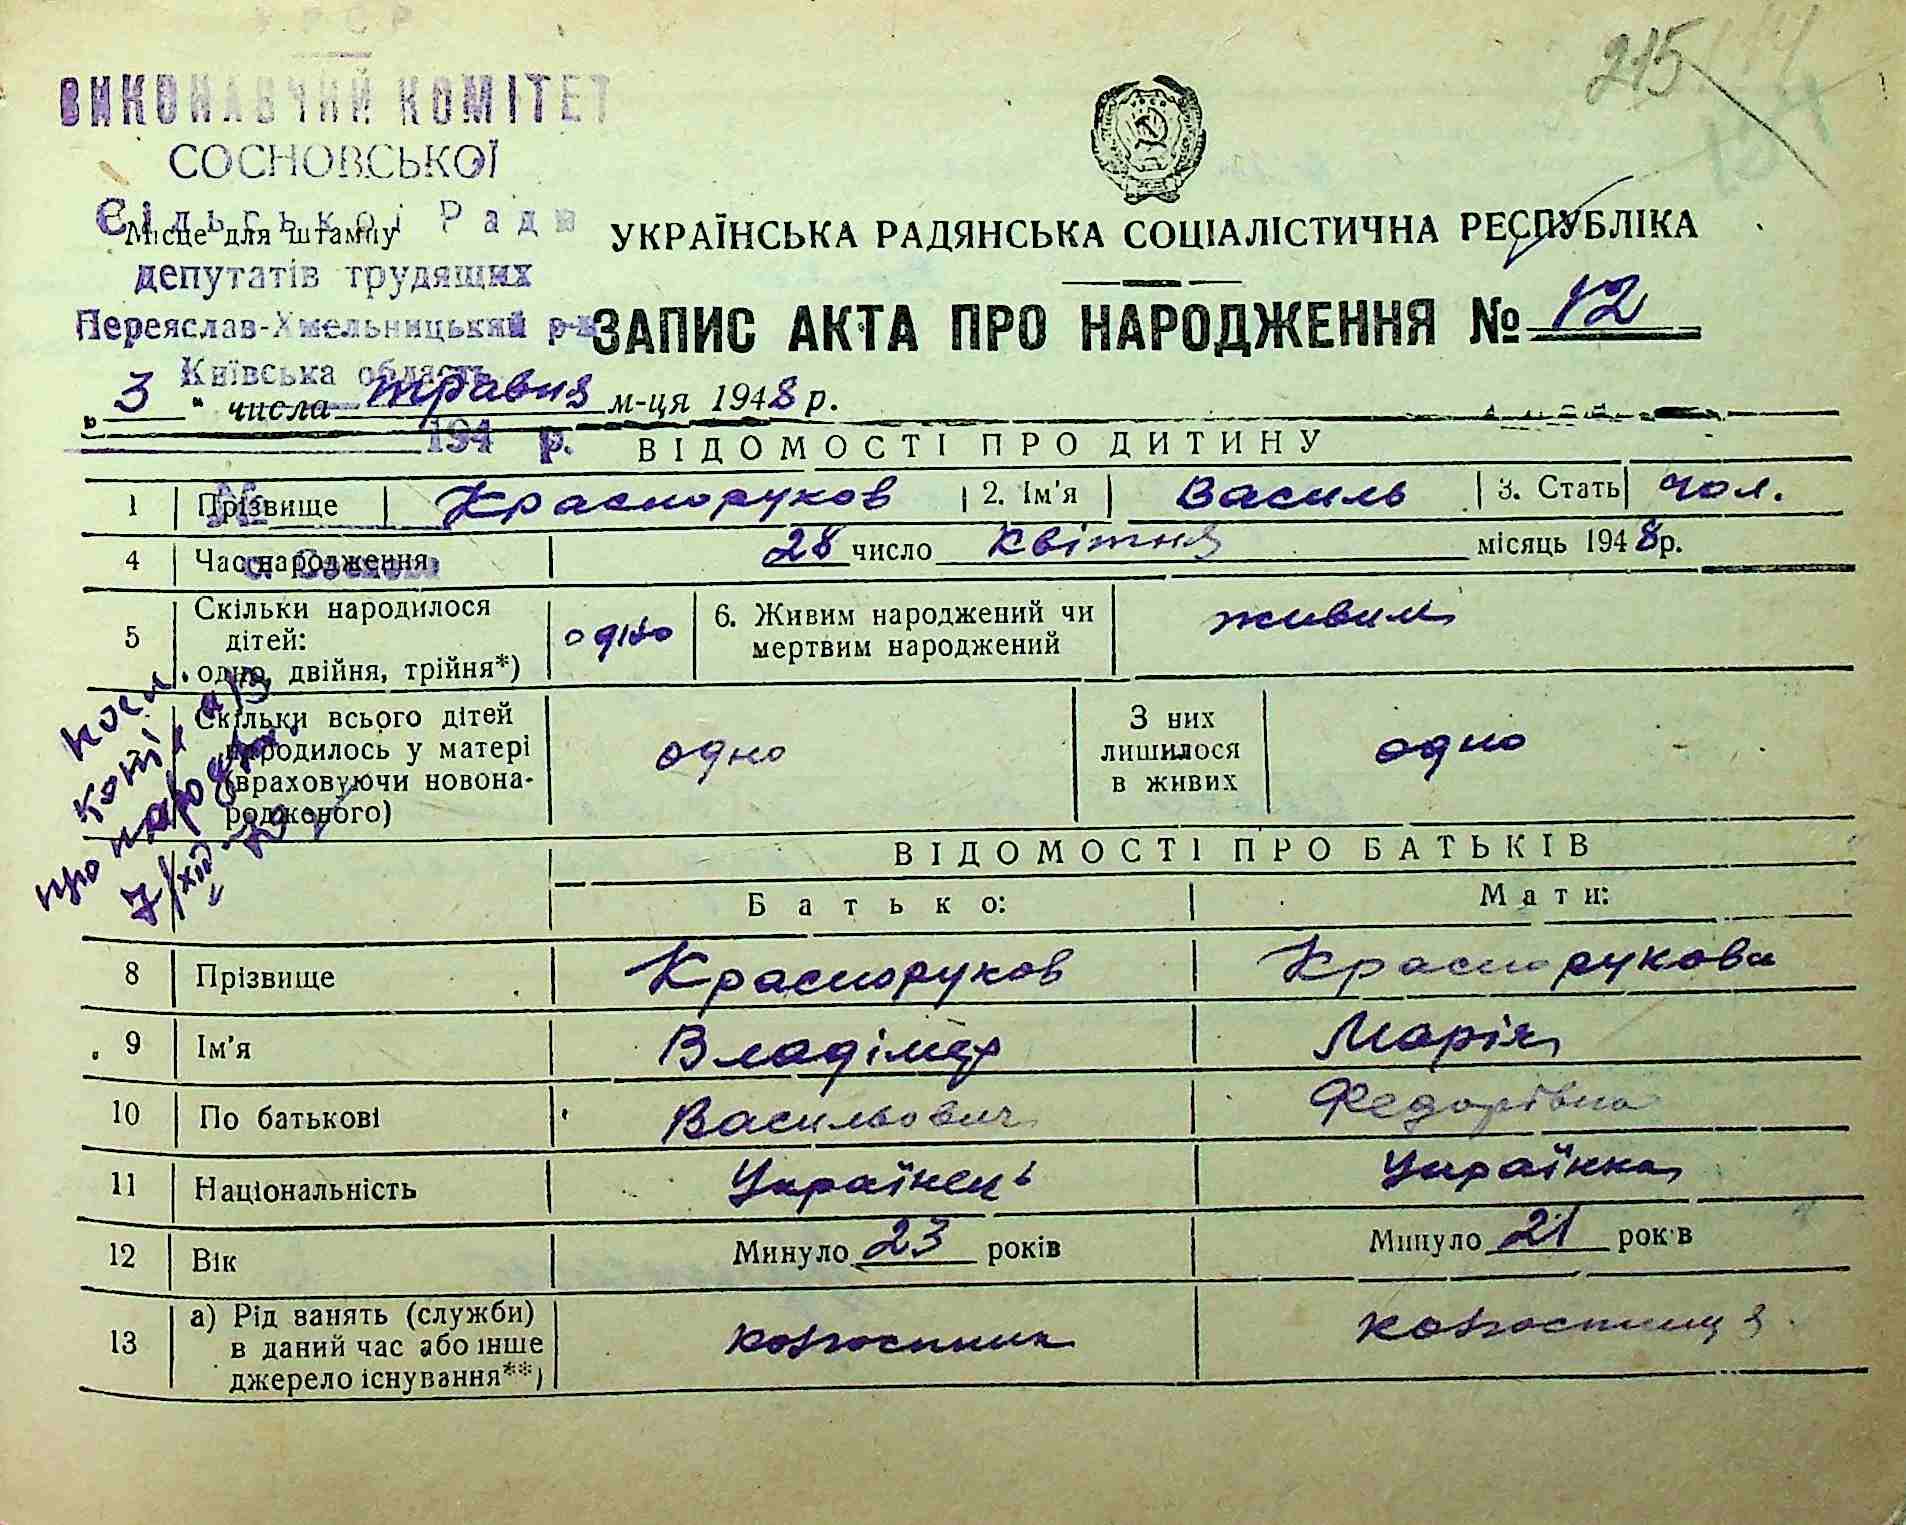 УРСР
215
ВИКОНАВЧИЙ КОМІТЕТ
СОСНОВСЬКОЇ
Сільської Ради
Місце для штампу
депутатів трудящих
Переяслав-Хмельницький р-н
Київська область
194 р.
№
с. Соснова
УРСР
УКРАЇНСЬКА РАДЯНСЬКА СОЦІАЛІСТИЧНА РЕСПУБЛІКА
ЗАПИС АКТА ПРО НАРОДЖЕННЯ № 12
„ 3 “ числа травня м-ця 1948 р.
ВІДОМОСТІ ПРО ДИТИНУ
1 Прізвище Красноруков 2. Ім'я Василь 3. Стать чол.
4 Час народження 28 число квітня місяць 1948 р.
5 Скільки народилося дітей: одно, двійня, трійня*) одно 6. Живим народжений чи мертвим народжений живим
Скільки всього дітей народилось у матері (враховуючи новонародженого) одно З них лишилося в живих одно
копія а/з
про народж
7/XII-70
ВІДОМОСТІ ПРО БАТЬКІВ
Батько: Мати:
8 Прізвище Красноруков Краснорукова
9 Ім'я Владімер Марія
10 По батькові Васильович Федорівна
11 Національність Українець Українка
12 Вік Минуло 23 років Минуло 21 рок в
13 а) Рід занять (служби) в даний час або інше джерело існування**) колгоспник колгоспниця